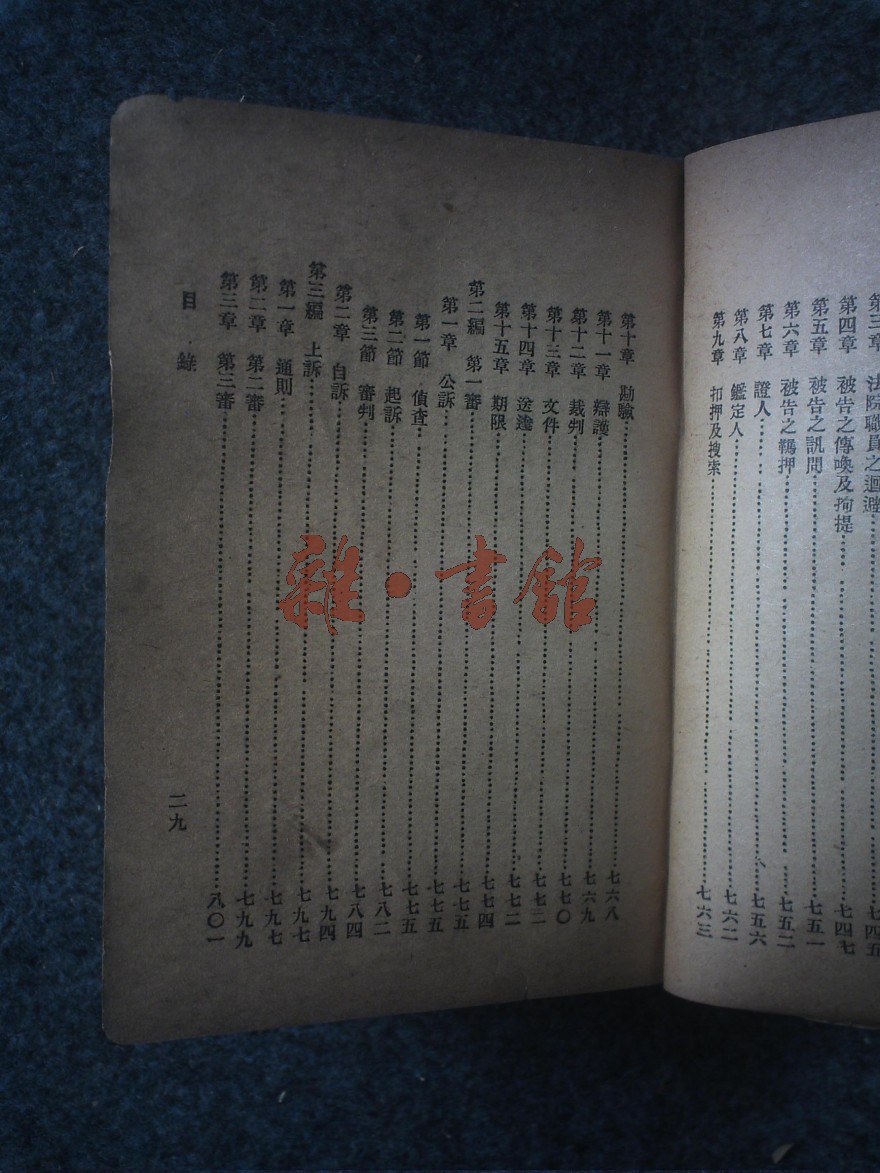 第三章 法院職員之迴避 七四五
第四章 被告之傳喚及拘提 七四七
第五章 被告之訊問 七五一
第六章 被告之羈押 七五二
第七章 證人 七五六
第八章 鑑定人 七六二
第九章 扣押及搜索 七六三
第十章 勘驗 七六八
第十一章 辯護 七六九
第十二章 裁判 七七〇
第十三章 文件 七七二
第十四章 送達 七七二
第十五章 期限 七七四
第二編 第一審 七七五
第一章 公訴 七七五
第一節 偵查 七七五
第二節 起訴 七八二
第三節 審判 七八四
第二章 自訴 七九四
第三編 上訴 七九七
第一章 通則 七九七
第二章 第二審 七九九
第三章 第三審 八〇一
目錄 二九
雜·書館